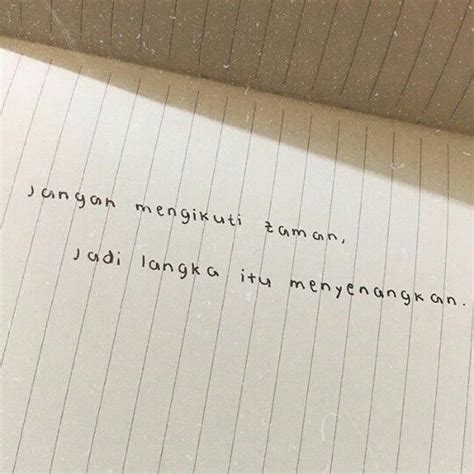 Jangan mengikuti zaman,
Jadi langka itu menyenangkan.